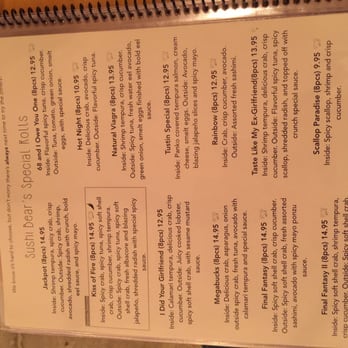 We know it's hard to choose, but don't worry dears always next time to try the
Sushi Dear's Special Rolls
68 and I Owe You One (8pcs) 12.95
Hot Night (8pcs) 10.95
Inside: Delicious crab, crisp cucumber.
Outside: Flavorful spicy tuna.
Natural Viagra (8pcs) 13.95
Inside: Shrimp tempura, crisp cucumber.
Outside: Spicy tuna, fresh water eel avocado,
green onion, smelt eggs finished with bold eel
sauce.
Tustin Special (8pcs) 12.95
Inside: Panko covered tempura salmon, cream
cheese, smelt eggs. Outside: Avocado,
blazing jalapeños slices and spicy mayo.
Rainbow (8pcs) 12.95
Inside: Crab, crisp cucumber, avocado.
Outside: Assorted fresh sashimi.
Taste Like My Ex-Girlfriend(8pcs) 13.95
Inside: Shrimp tempura, delicious crab, crisp
cucumber. Outside: Flavorful spicy tuna, spicy
scallop, shredded radish, and topped off with
crunch, special sauce.
Scallop Paradise (8pcs) 9.95
Inside: Spicy scallop, shrimp and crisp
cucumber.
Jackpot (8pcs) 14.95
Inside: Shrimp tempura, spicy crab, crisp
cucumber. Outside: Spicy tuna, shrimp,
avocado, shredded radish with crunch, bold
eel sauce, and spicy mayo.
Kiss of Fire (8pcs) 14.95
Inside: Spicy crab, spicy tuna, spicy soft shell
crab, crisp cucumber, shrimp tempura.
Outside: Spicy crab, spicy tuna, spicy soft
shell crab, crisp cucumber topped blazing
jalapeño, shredded radish with special spicy
sauce.
I Did Your Girlfriend (8pcs) 12.95
Inside: Calamari tempura, delicious crab, crisp
cucumber. Outside: Juicy cooked lobster,
spicy soft shell crab, with sesame mustard
sauce.
Megabucks (8pcs) 14.95
Inside: Delicious crab, asparagus, onion
outside spicy crab, fresh tuna, avocado with
calamari tempura and special sauce.
Final Fantasy (8pcs) 14.95
Inside: Spicy soft shell crab, crisp cucumber.
Outside: Spicy soft shell crab, fresh assorted
sashimi, avocado with spicy mayo ponzu
sauce.
Final Fantasy II (8pcs) 14.95
Inside: Spicy soft shell crab, shrimp tempura,
crisp cucumber. Outside: Spicy soft shell crab,